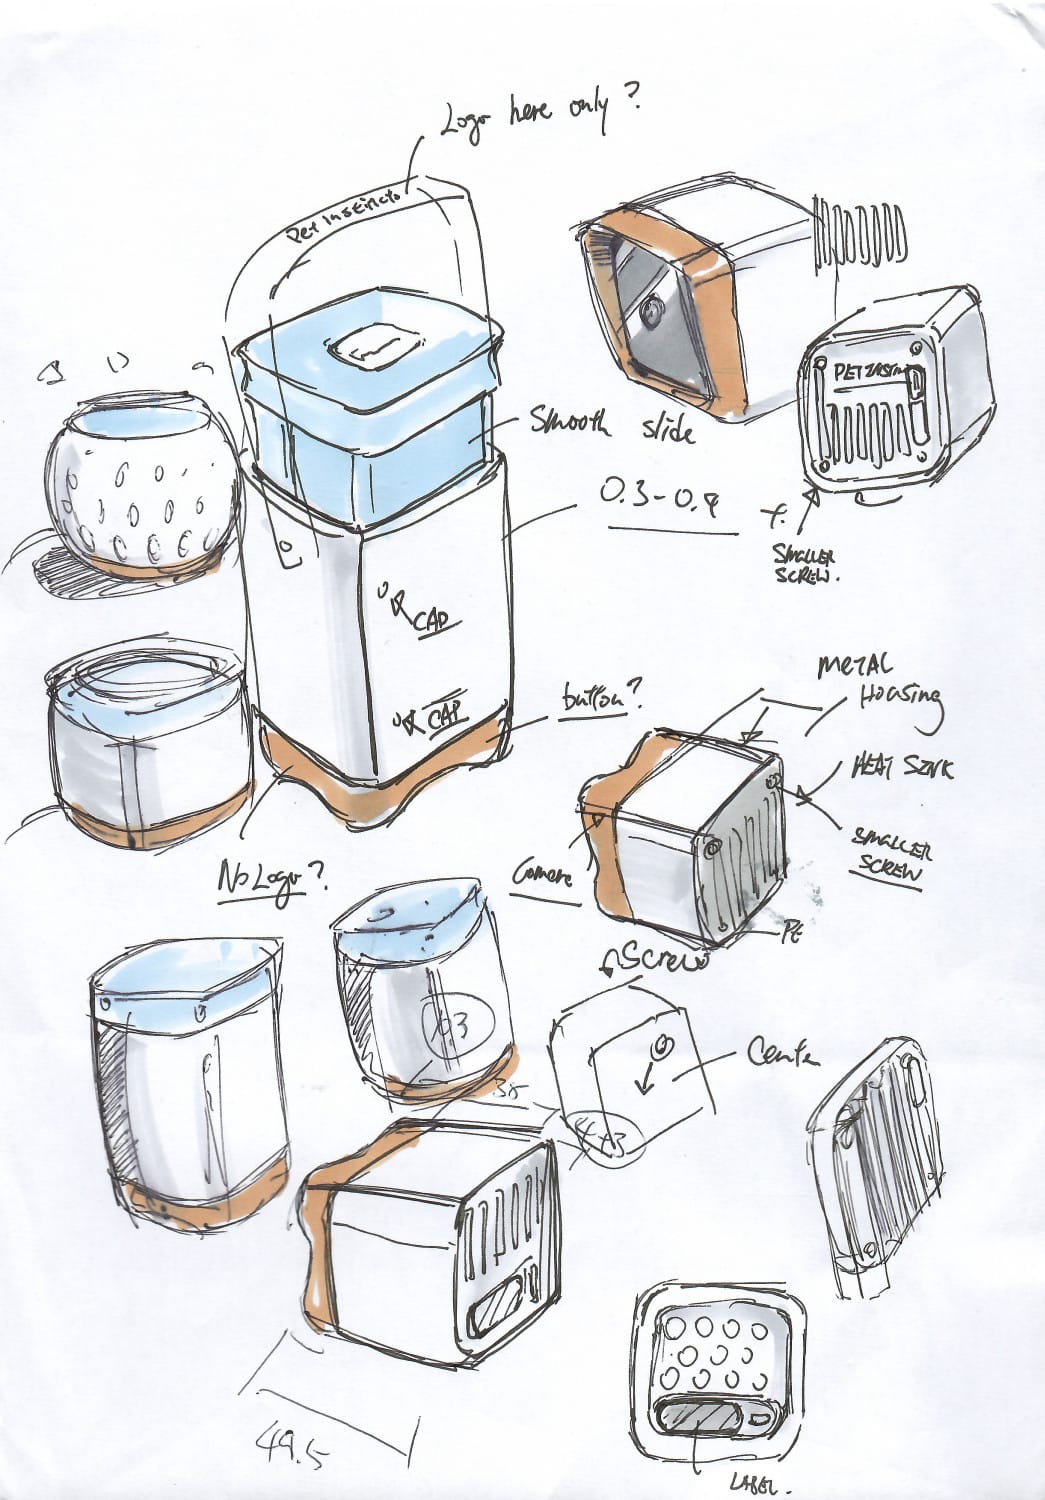 Logo here only ?
Pet Instincts
PET Instin
Smooth slide
0.3-0.4
SMALLER
SCREW.
CAP
CAP
button?
METAL
Housing
HEAT SINK
SMALLER
SCREW
No Logo?
Camera
PE
Screw
0.3
Center
38
4x3
49.5
LABEL.